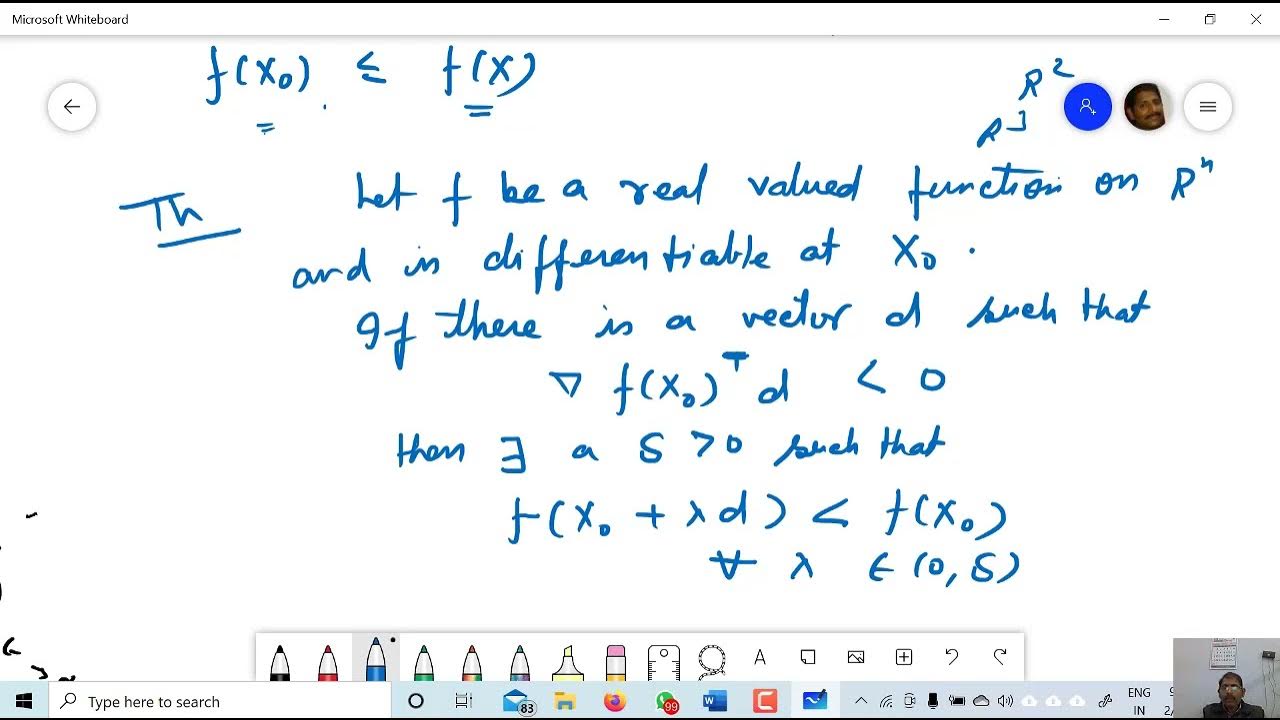 Microsoft Whiteboard
f(X₀) ≤ f(X)
R²
R³
Th
Let f be a real valued function on Rⁿ
and is differentiable at X₀.
If there is a vector d such that
∇ f(X₀)ᵀ d < 0
then ∃ a δ > 0 such that
f(X₀ + λd) < f(X₀)
∀ λ ∈ (0, δ)
A
Type here to search
83
99
ENG
IN